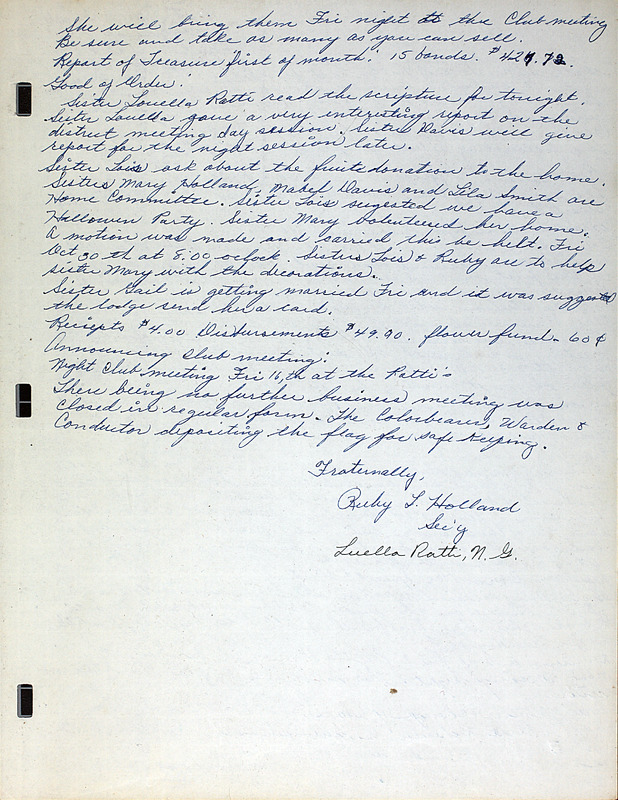 She will bring them Fri night to the Club meeting
Be sure and take as many as you can sell.
Report of Treasure first of month. 15 bonds. $427.72.
Good of Order:
Sister Louella Ratti read the scripture for tonight.
Sister Louella gave a very interesting report on the
district meeting day session. Sister Davis will give
report for the night session later.
Sister Lois ask about the fruit donation to the home.
Sisters Mary Holland, Mabel Davis and Lila Smith are
Home Committee. Sister Lois sugested we have a
Hallowen Party. Sister Mary volenteered her home.
A motion was made and carried this be helt. Fri
Oct 30th at 8:00 oclock. Sisters Lois & Ruby are to help
sister Mary with the decorations.
Sister Gail is getting married Fri and it was suggested
the lodge send her a card.
Reciepts $4.00 Disbursements $49.90. flower fund - 60¢
Announcing Club meeting:
Night Club meeting Fri 16,th at the Ratti's
There being no further business meeting was
closed in regular form. The Colorbearer, Warden &
Conductor depositing the flag for safe keeping.
Fraternally,
Ruby L. Holland
Sec'y
Luella Ratti, N. G.